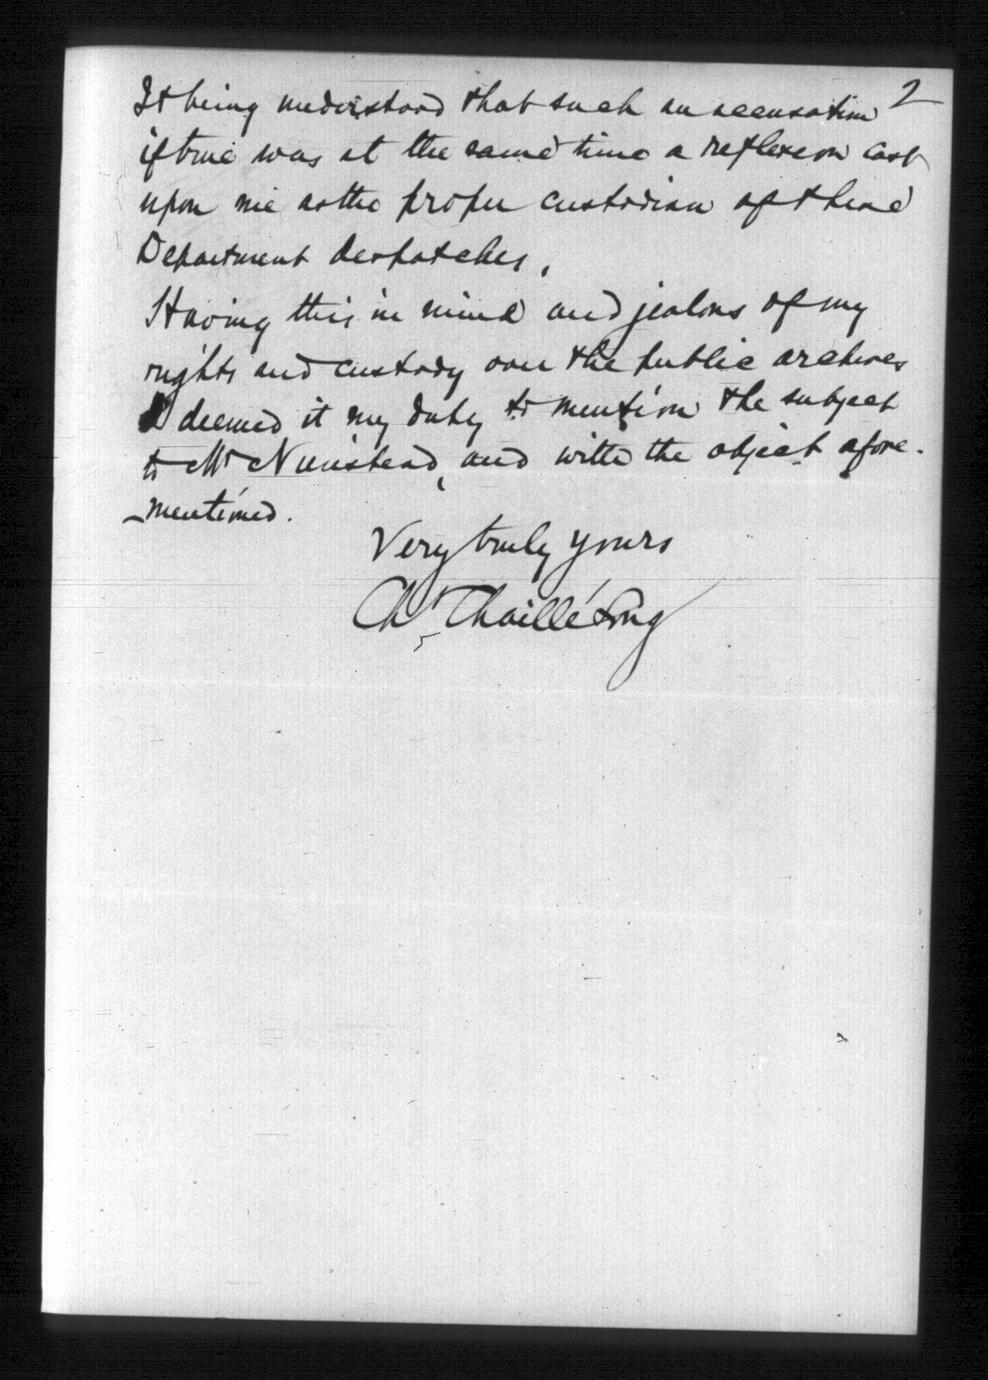 2
It being understood that such an accusation
if true was at the same time a reflexion cast
upon me as the proper custodian of these
Department despatches,
Having this in mind and jealous of my
rights and custody over the public archives
I deemed it my duty to mention the subject
to Mr and with the object afore-
-mentioned.
Very truly yours
Chs Chaillé Long